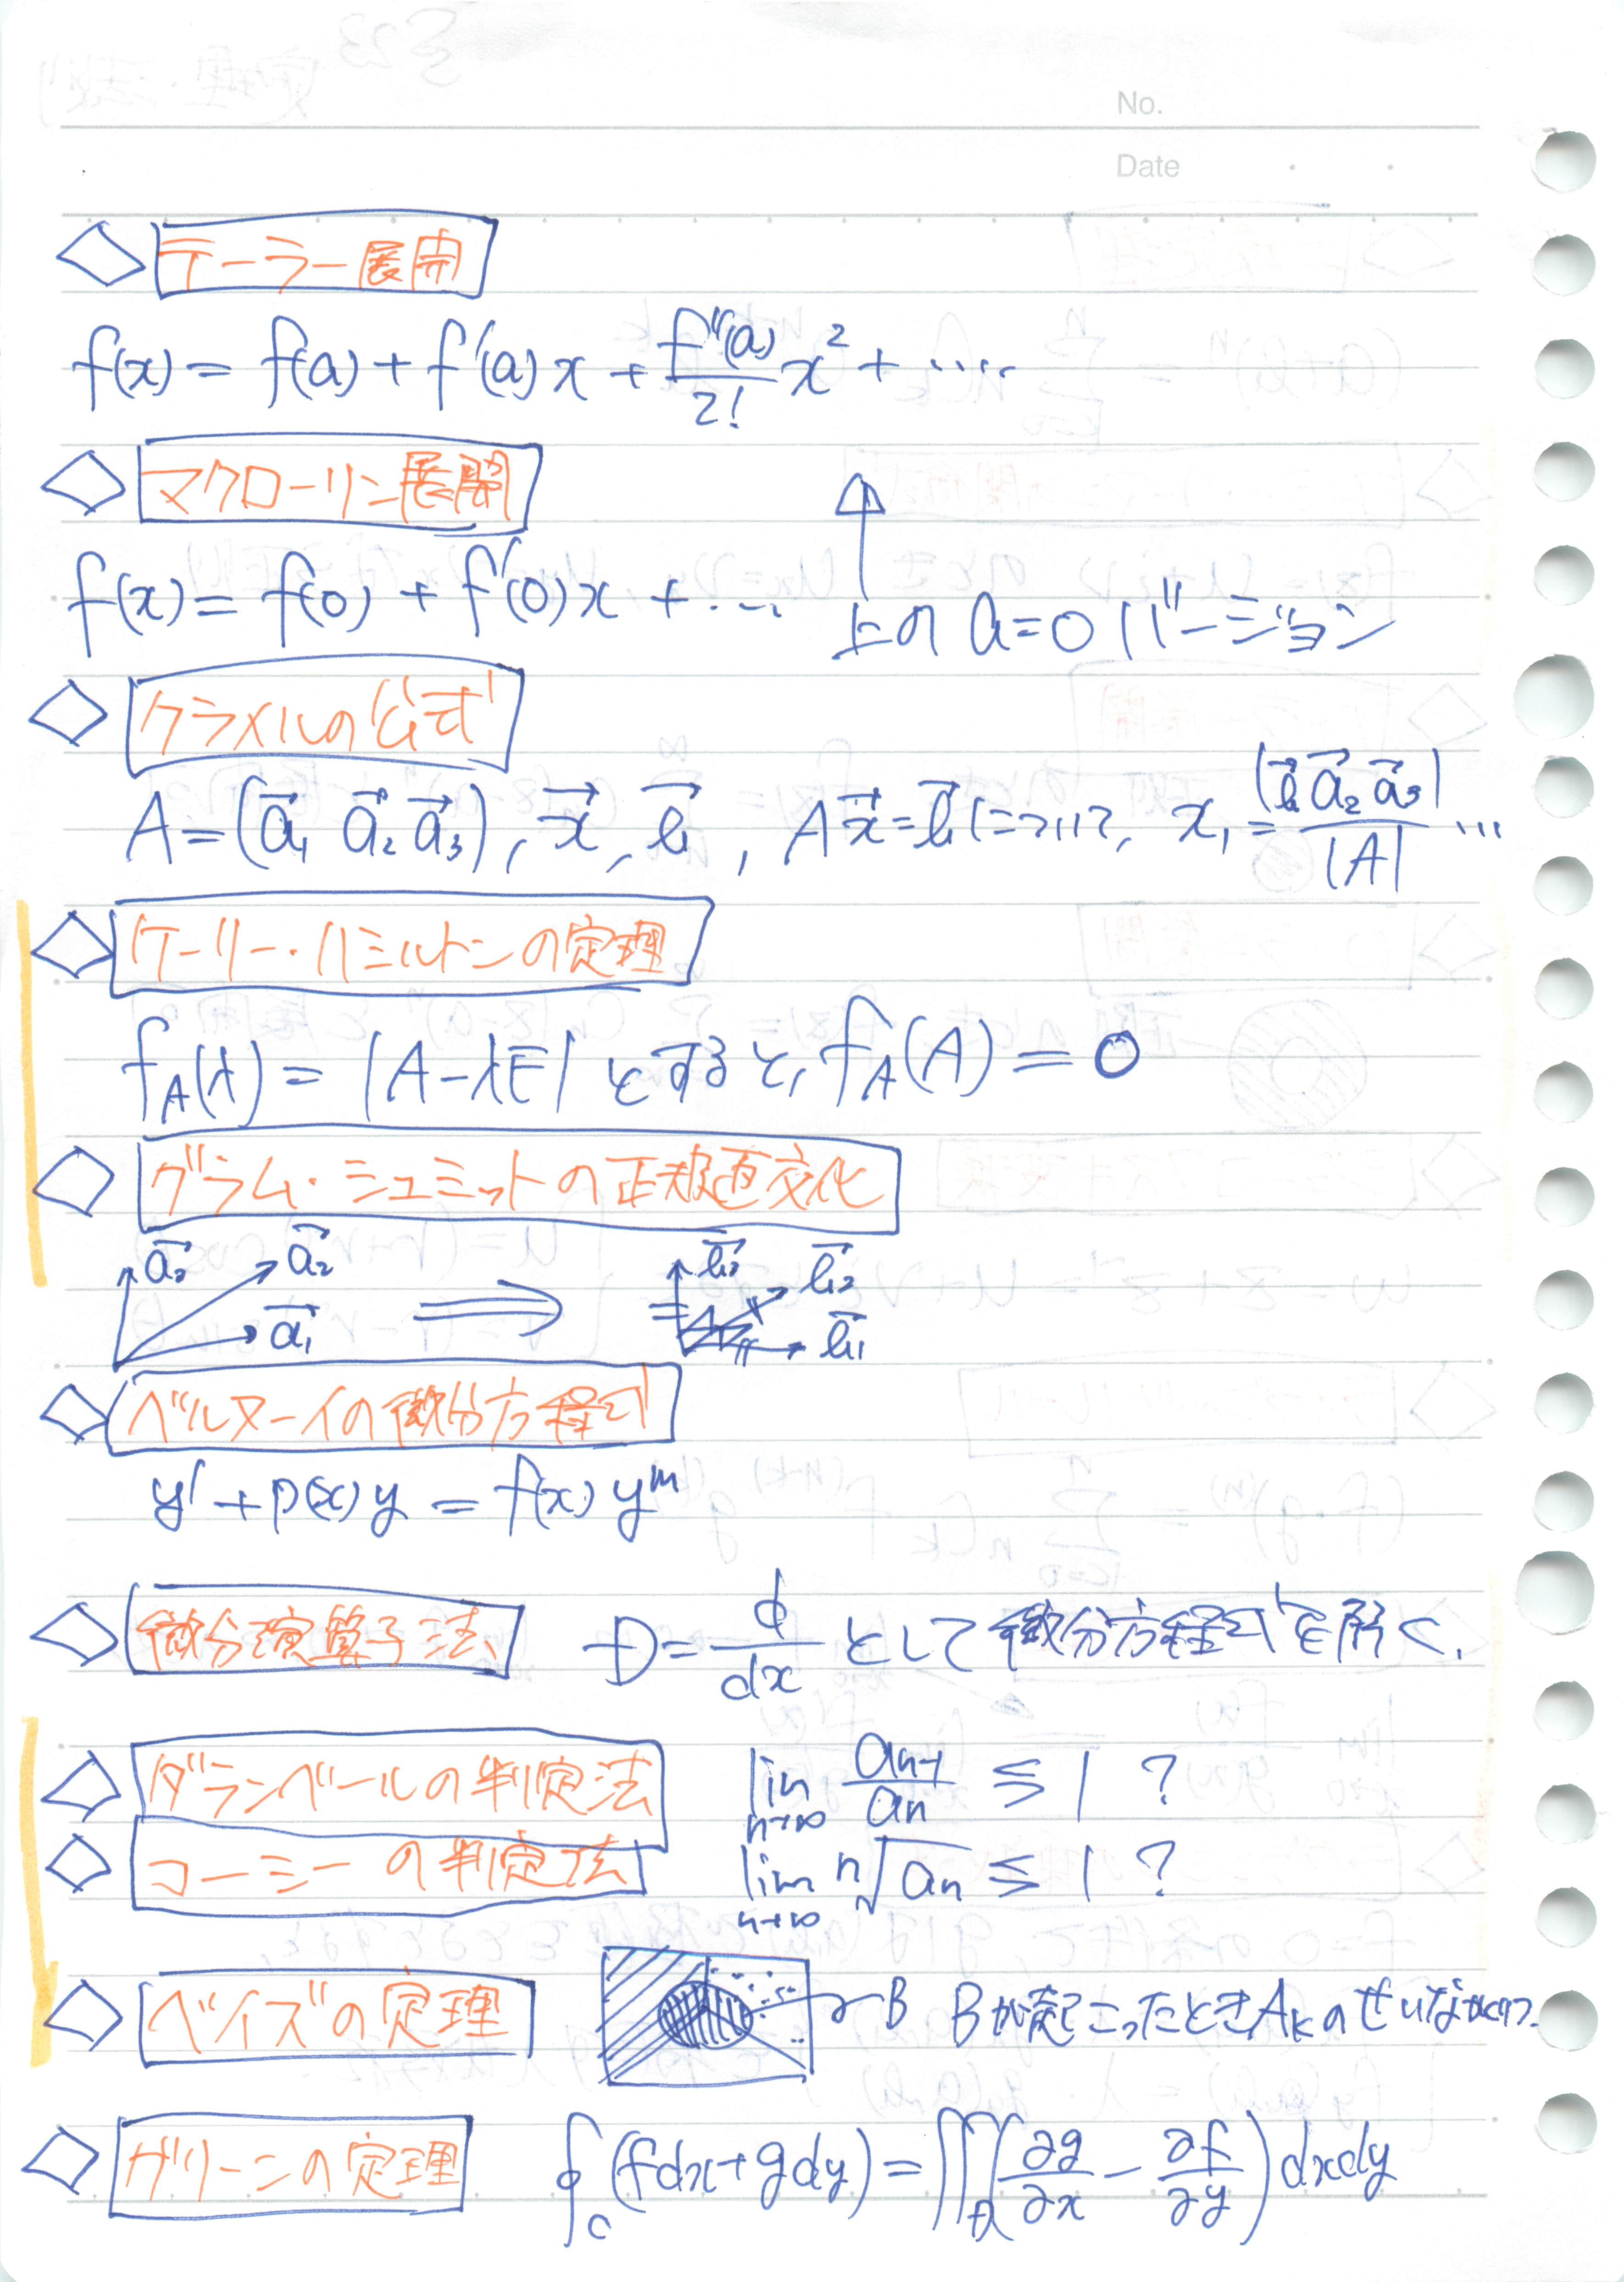 No.
Date
テーラー展開
f(x) = f(a) + f'(a)x + f''(a)/2! x² + ‥‥
マクローリン展開
f(x) = f(0) + f'(0)x + ‥‥
上の a=0 バージョン
クラメルの公式
A = (a⃗₁ a⃗₂ a⃗₃), x⃗, b⃗, Ax⃗ = b⃗ について, x₁ = |b⃗ a⃗₂ a⃗₃| / |A| …
ケーリー・ハミルトンの定理
f_A(λ) = |A-λE| とすると, f_A(A) = 0
グラム・シュミットの正規直交化
a⃗₃ a⃗₂ a⃗₁ ⇒ b⃗₃ b⃗₂ b⃗₁
ベルヌーイの微分方程式
y' + p(x)y = f(x)y^m
微分演算子法 D = d/dx として微分方程式を解く.
ダランベールの判定法 lim n→∞ an+1/an ≦ 1 ?
コーシーの判定法 lim n→∞ ⁿ√an ≦ 1 ?
ベイズの定理 B Bが起こったときAkのせいなかくりつ.
グリーンの定理 ∮_C (fdx + gdy) = ∬_D (∂g/∂x - ∂f/∂y) dxdy